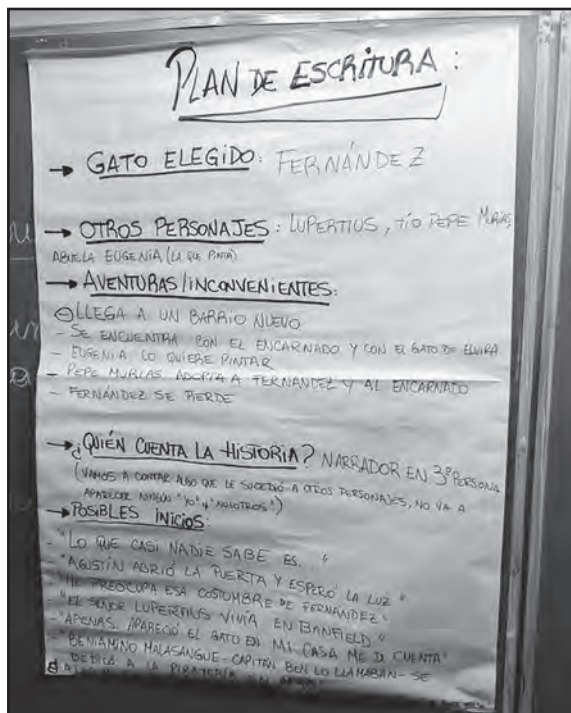 PLAN DE ESCRITURA:
→ GATO ELEGIDO: FERNÁNDEZ
→ OTROS PERSONAJES: LUPERTIUS, TÍO PEPE MURIAS,
ABUELA EUGENIA (LA QUE PINTA)
→ AVENTURAS/INCONVENIENTES:
LLEGA A UN BARRIO NUEVO
- SE ENCUENTRA CON EL ENCARNADO Y CON EL GATO DE ELVIRA
- EUGENIA LO QUIERE PINTAR
- PEPE MURIAS ADOPTA A FERNÁNDEZ Y AL ENCARNADO
- FERNÁNDEZ SE PIERDE
→ ¿QUIÉN CUENTA LA HISTORIA? NARRADOR EN 3ª PERSONA
(VAMOS A CONTAR ALGO QUE LE SUCEDIÓ A OTROS PERSONAJES, NO VA A
APARECER NINGÚN "YO" "NOSOTROS")
→ POSIBLES INICIOS:
- "LO QUE CASI NADIE SABE ES..."
- "AGUSTÍN ABRIÓ LA PUERTA Y ESPERÓ LA LUZ"
- "ME PREOCUPA ESA COSTUMBRE DE FERNÁNDEZ"
- "EL SEÑOR LUPERTIUS VIVÍA EN BANFIELD"
- "APENAS APARECIÓ EL GATO EN MI CASA ME DI CUENTA"
- "BENIAMINO MALASANGUE - CAPITÁN BEN LO LLAMABAN - SE
DEDICA A LA PIRATERÍA